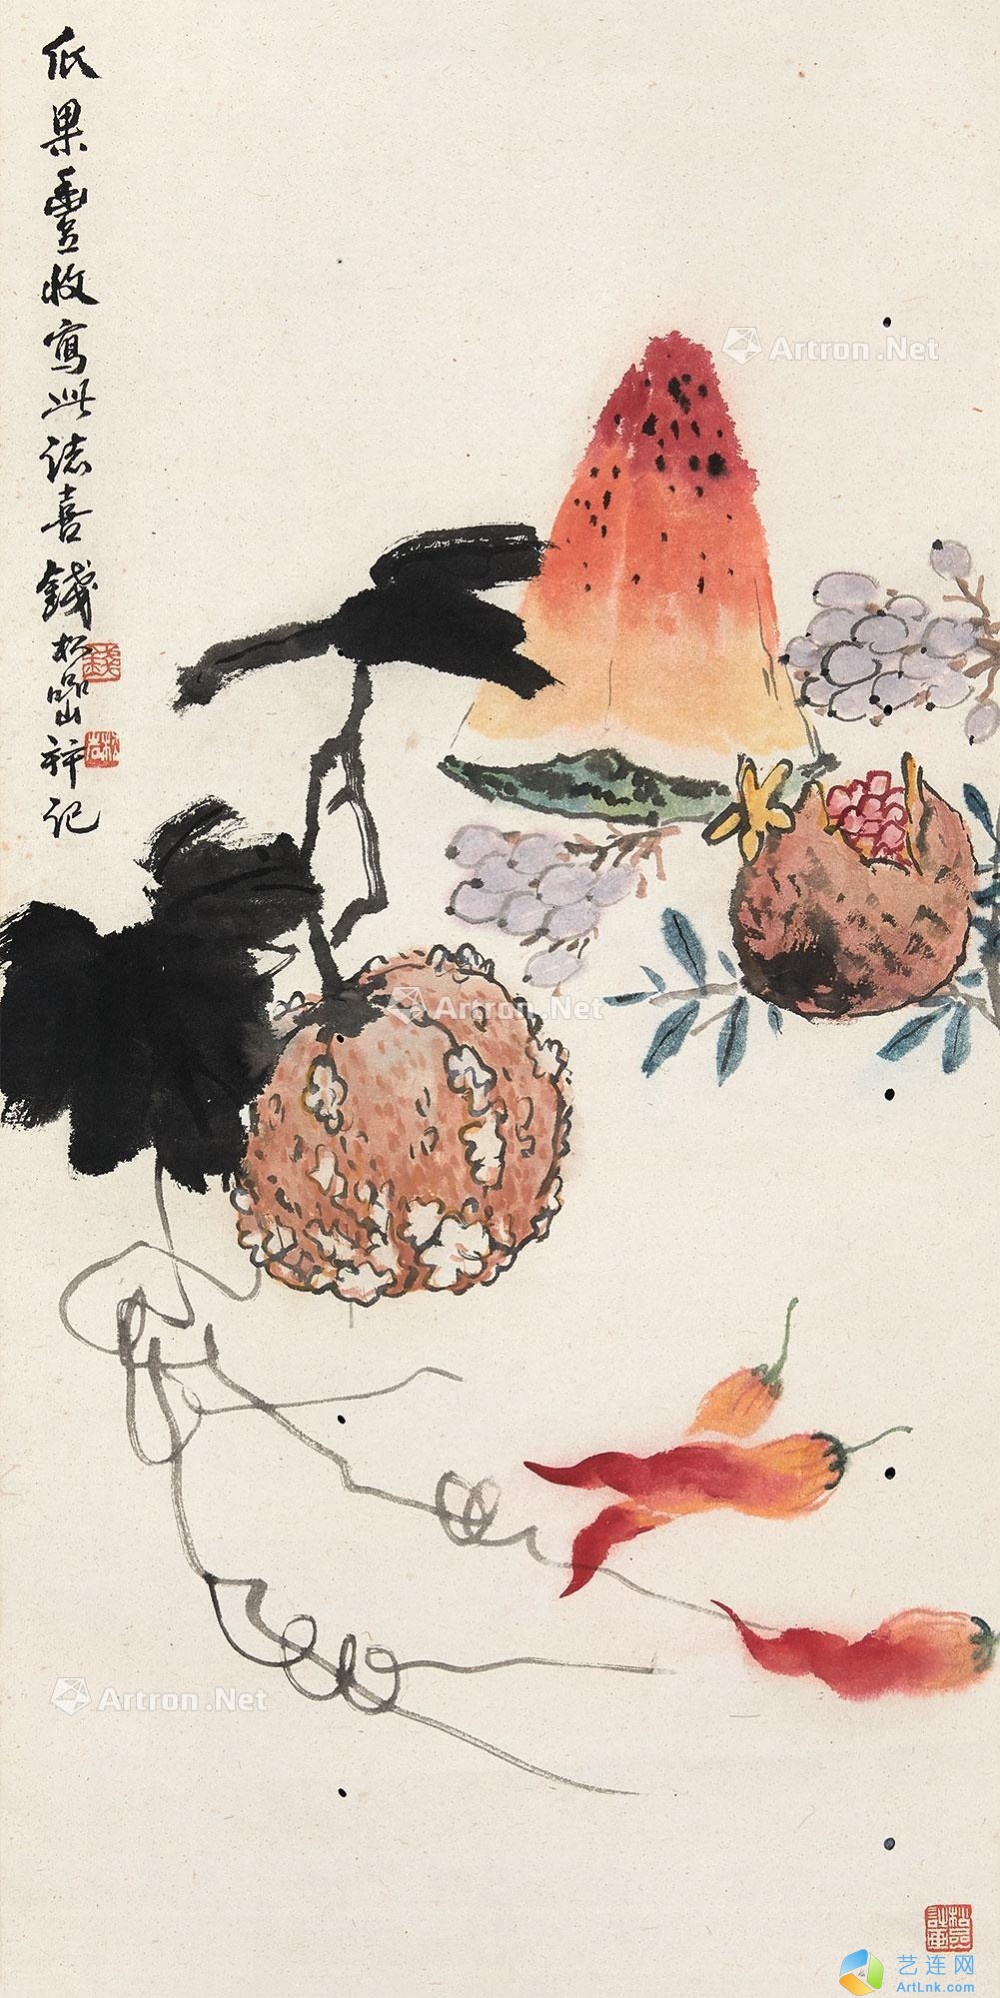 瓜果豐收寫此誌喜錢松嵒並記
Artron.Net
Artron.Net
Artron.Net
艺连网
ArtLnk.com